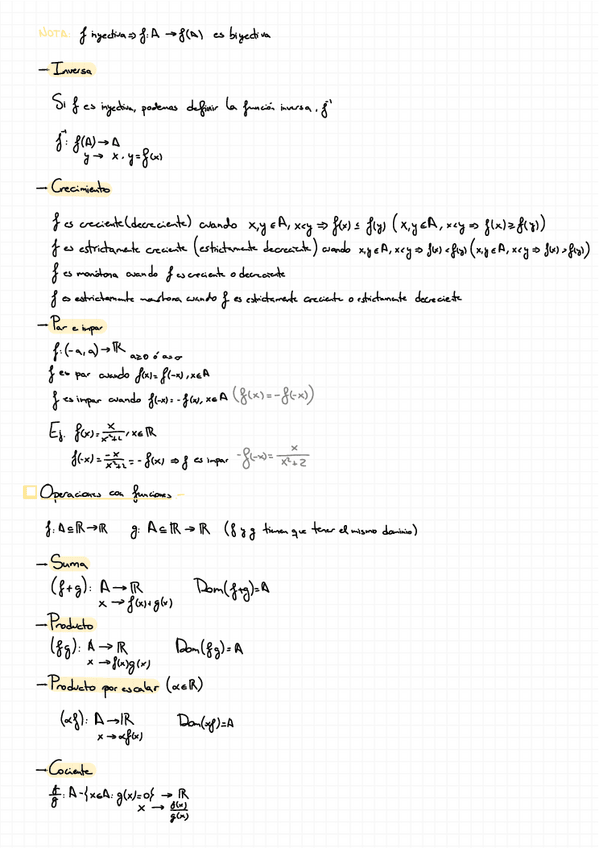 NOTA f inyectiva ⇒ f: A → f(A) es biyectiva
— Inversa
Si f es inyectiva, podemos definir la función inversa, f⁻¹
f⁻¹: f(A) → A
y → x, y = f(x)
— Crecimiento
f es creciente (decreciente) cuando x,y ∈ A, x<y ⇒ f(x) ≤ f(y) (x,y ∈ A, x<y ⇒ f(x) ≥ f(y))
f es estrictamente creciente (estrictamente decreciente) cuando x,y ∈ A, x<y ⇒ f(x) < f(y) (x,y ∈ A, x<y ⇒ f(x) > f(y))
f es monótona cuando f es creciente o decreciente
f es estrictamente monótona cuando f es estrictamente creciente o estrictamente decreciente
— Par e impar
f: (-a, a) → ℝ a≥0 ó a=∞
f es par cuando f(x) = f(-x), x∈A
f es impar cuando f(-x) = -f(x), x∈A (f(x) = -f(-x))
Ej. f(x) = x/(x²+2), x∈ℝ
f(-x) = -x/(x²+2) = -f(x) ⇒ f es impar -f(-x) = x/(x²+2)
Operaciones con funciones
f: A ⊆ ℝ → ℝ g: A ⊆ ℝ → ℝ (f y g tienen que tener el mismo dominio)
— Suma
(f+g): A → ℝ Dom(f+g) = A
x → f(x)+g(x)
— Producto
(fg): A → ℝ Dom(fg) = A
x → f(x)g(x)
— Producto por escalar (α∈ℝ)
(αf): A → ℝ Dom(αf) = A
x → αf(x)
— Cociente
f/g: A - {x∈A: g(x)=0} → ℝ
x → f(x)/g(x)